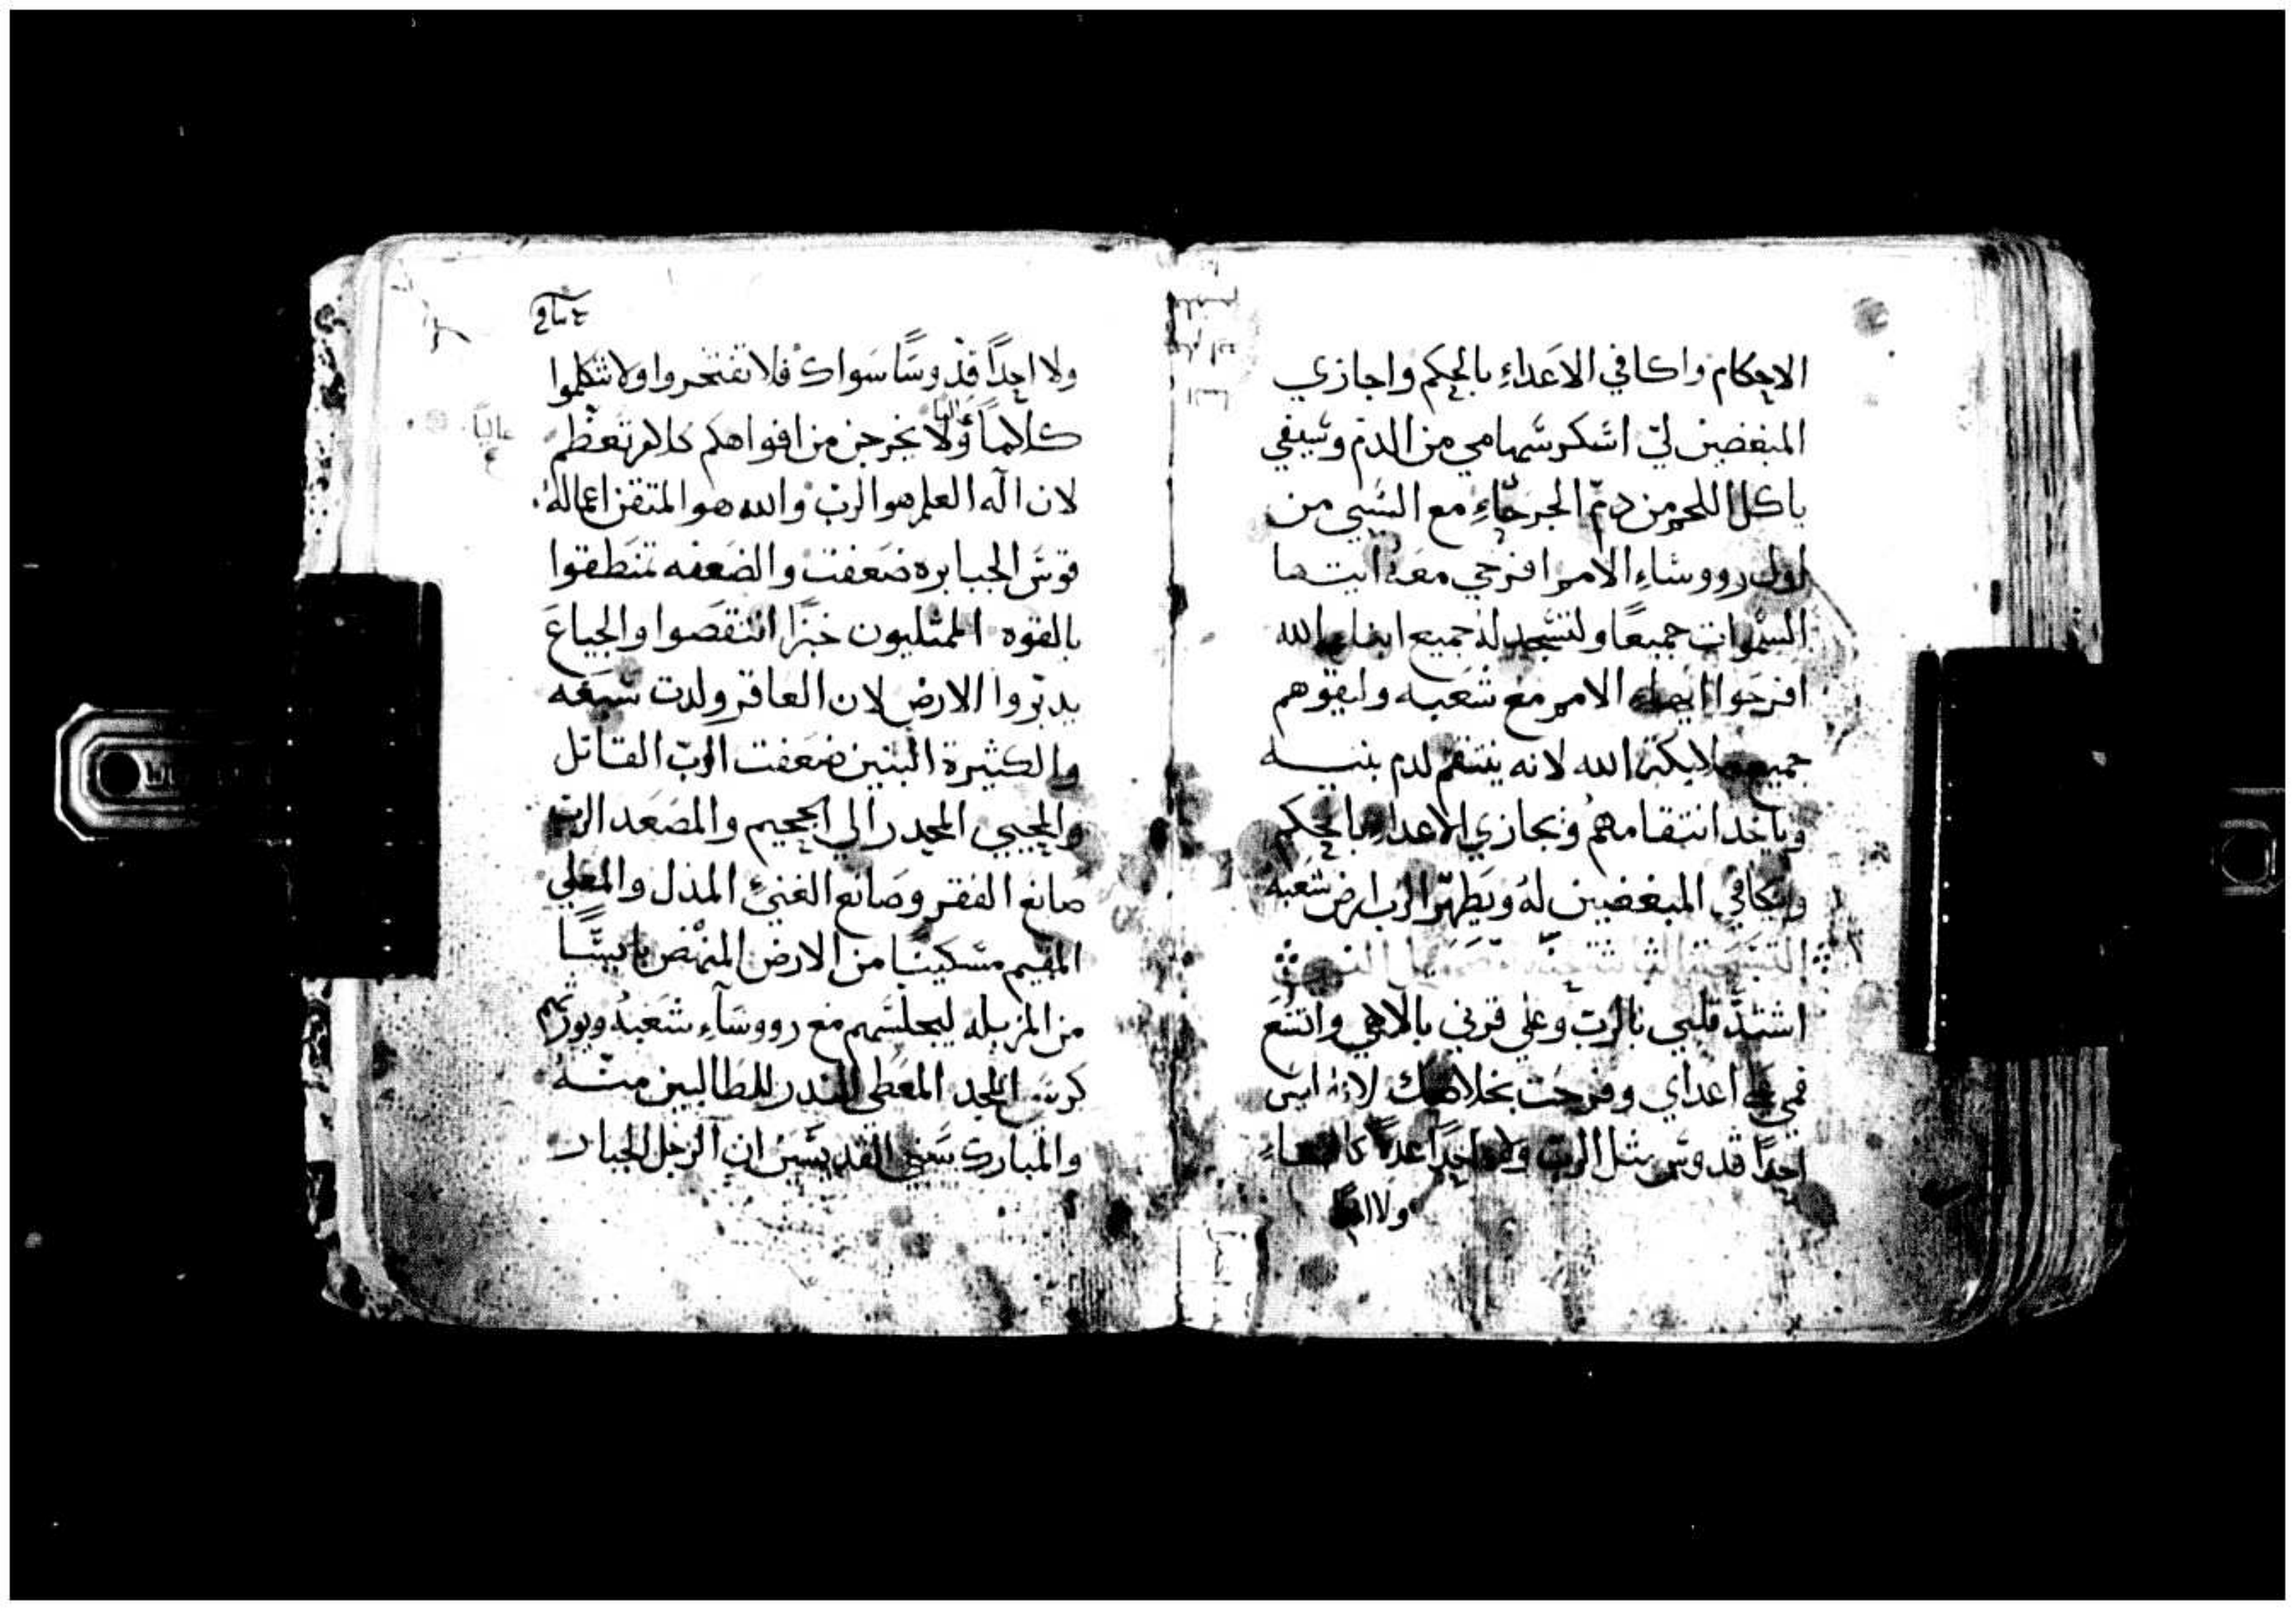 الاحكام واكافي الاعداء بالحكم واجازي
المبغضين لي اسكر سهامي من الدم وسيفي
ياكل اللحم من دم الجرحاء مع السبي من
اول رووساء الامم افرحي معه ايتها
السموات جميعًا ولتسجد له جميع ابناء الله
افرحوا ايها الامم مع شعبه وليقوهم
جميع ملايكة الله لانه ينتقم لدم بنيه
وياخد انتقامهم ويجازي الاعداء بالحكم
ويكافي المبغضين له ويطهر الرب ارض شعبه
التسبحة الثالثة
اشتد قلبي بالرب وعلي قرني بالاهي واتسع
فمي علي اعداي وفرحت بخلاصك لانه ليس
احدًا قدوس مثل الرب ولا احدًا عدلًا كالاهنا
ولا احدًا
ولا احدًا قدوسًا سواك فلا تفتخروا ولا تتكلموا
كلامًا عاليا ولا يخرجن من افواهكم كلام تعظم
عاليًا
لان اله العلم هو الرب والله هو المتقن اعماله
قوس الجبابره ضعفت والضعفه تمنطقوا
بالقوه الممتليون خبزًا انتقصوا والجياع
يدبروا الارض لان العاقر ولدت سبعه
والكثيرة البنين ضعفت الرب القاتل
والمحيي المحدر الي الجحيم والمصعد الرب
صانع الفقر وصانع الغني المذل والمعلي
المقيم مسكينًا من الارض المنهض بايسًا
من المزبله ليجلسهم مع رووساء شعبه ويورثهم
كرسي المجد المعطي النذر للطالبين منه
والمبارك سني القديسين ان الرجل الجبار